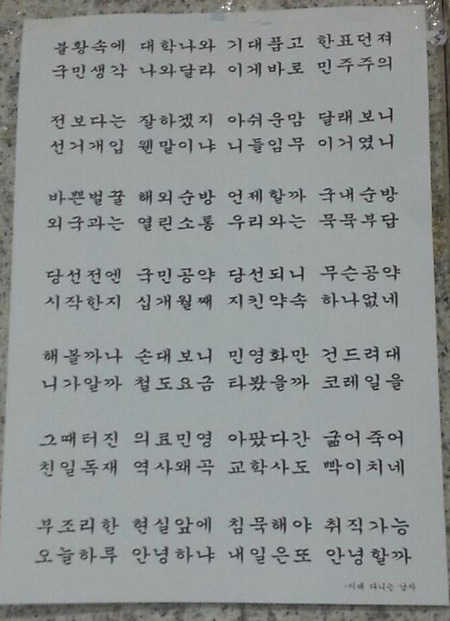 불황속에 대학나와 기대품고 한표던져
국민생각 나와달라 이게바로 민주주의
전보다는 잘하겠지 아쉬운맘 달래보니
선거개입 웬말이냐 니들임무 이거였니
바쁜벌꿀 해외순방 언제할까 국내순방
외국과는 열린소통 우리와는 묵묵부답
당선전엔 국민공약 당선되니 무슨공약
시작한지 십개월째 지킨약속 하나없네
해볼까나 손대보니 민영화만 건드려대
니가알까 철도요금 타봤을까 코레일을
그때터진 의료민영 아팠다간 굶어죽어
친일독재 역사왜곡 교학사도 빡이치네
부조리한 현실앞에 침묵해야 취직가능
오늘하루 안녕하냐 내일은또 안녕할까
다니는 남자